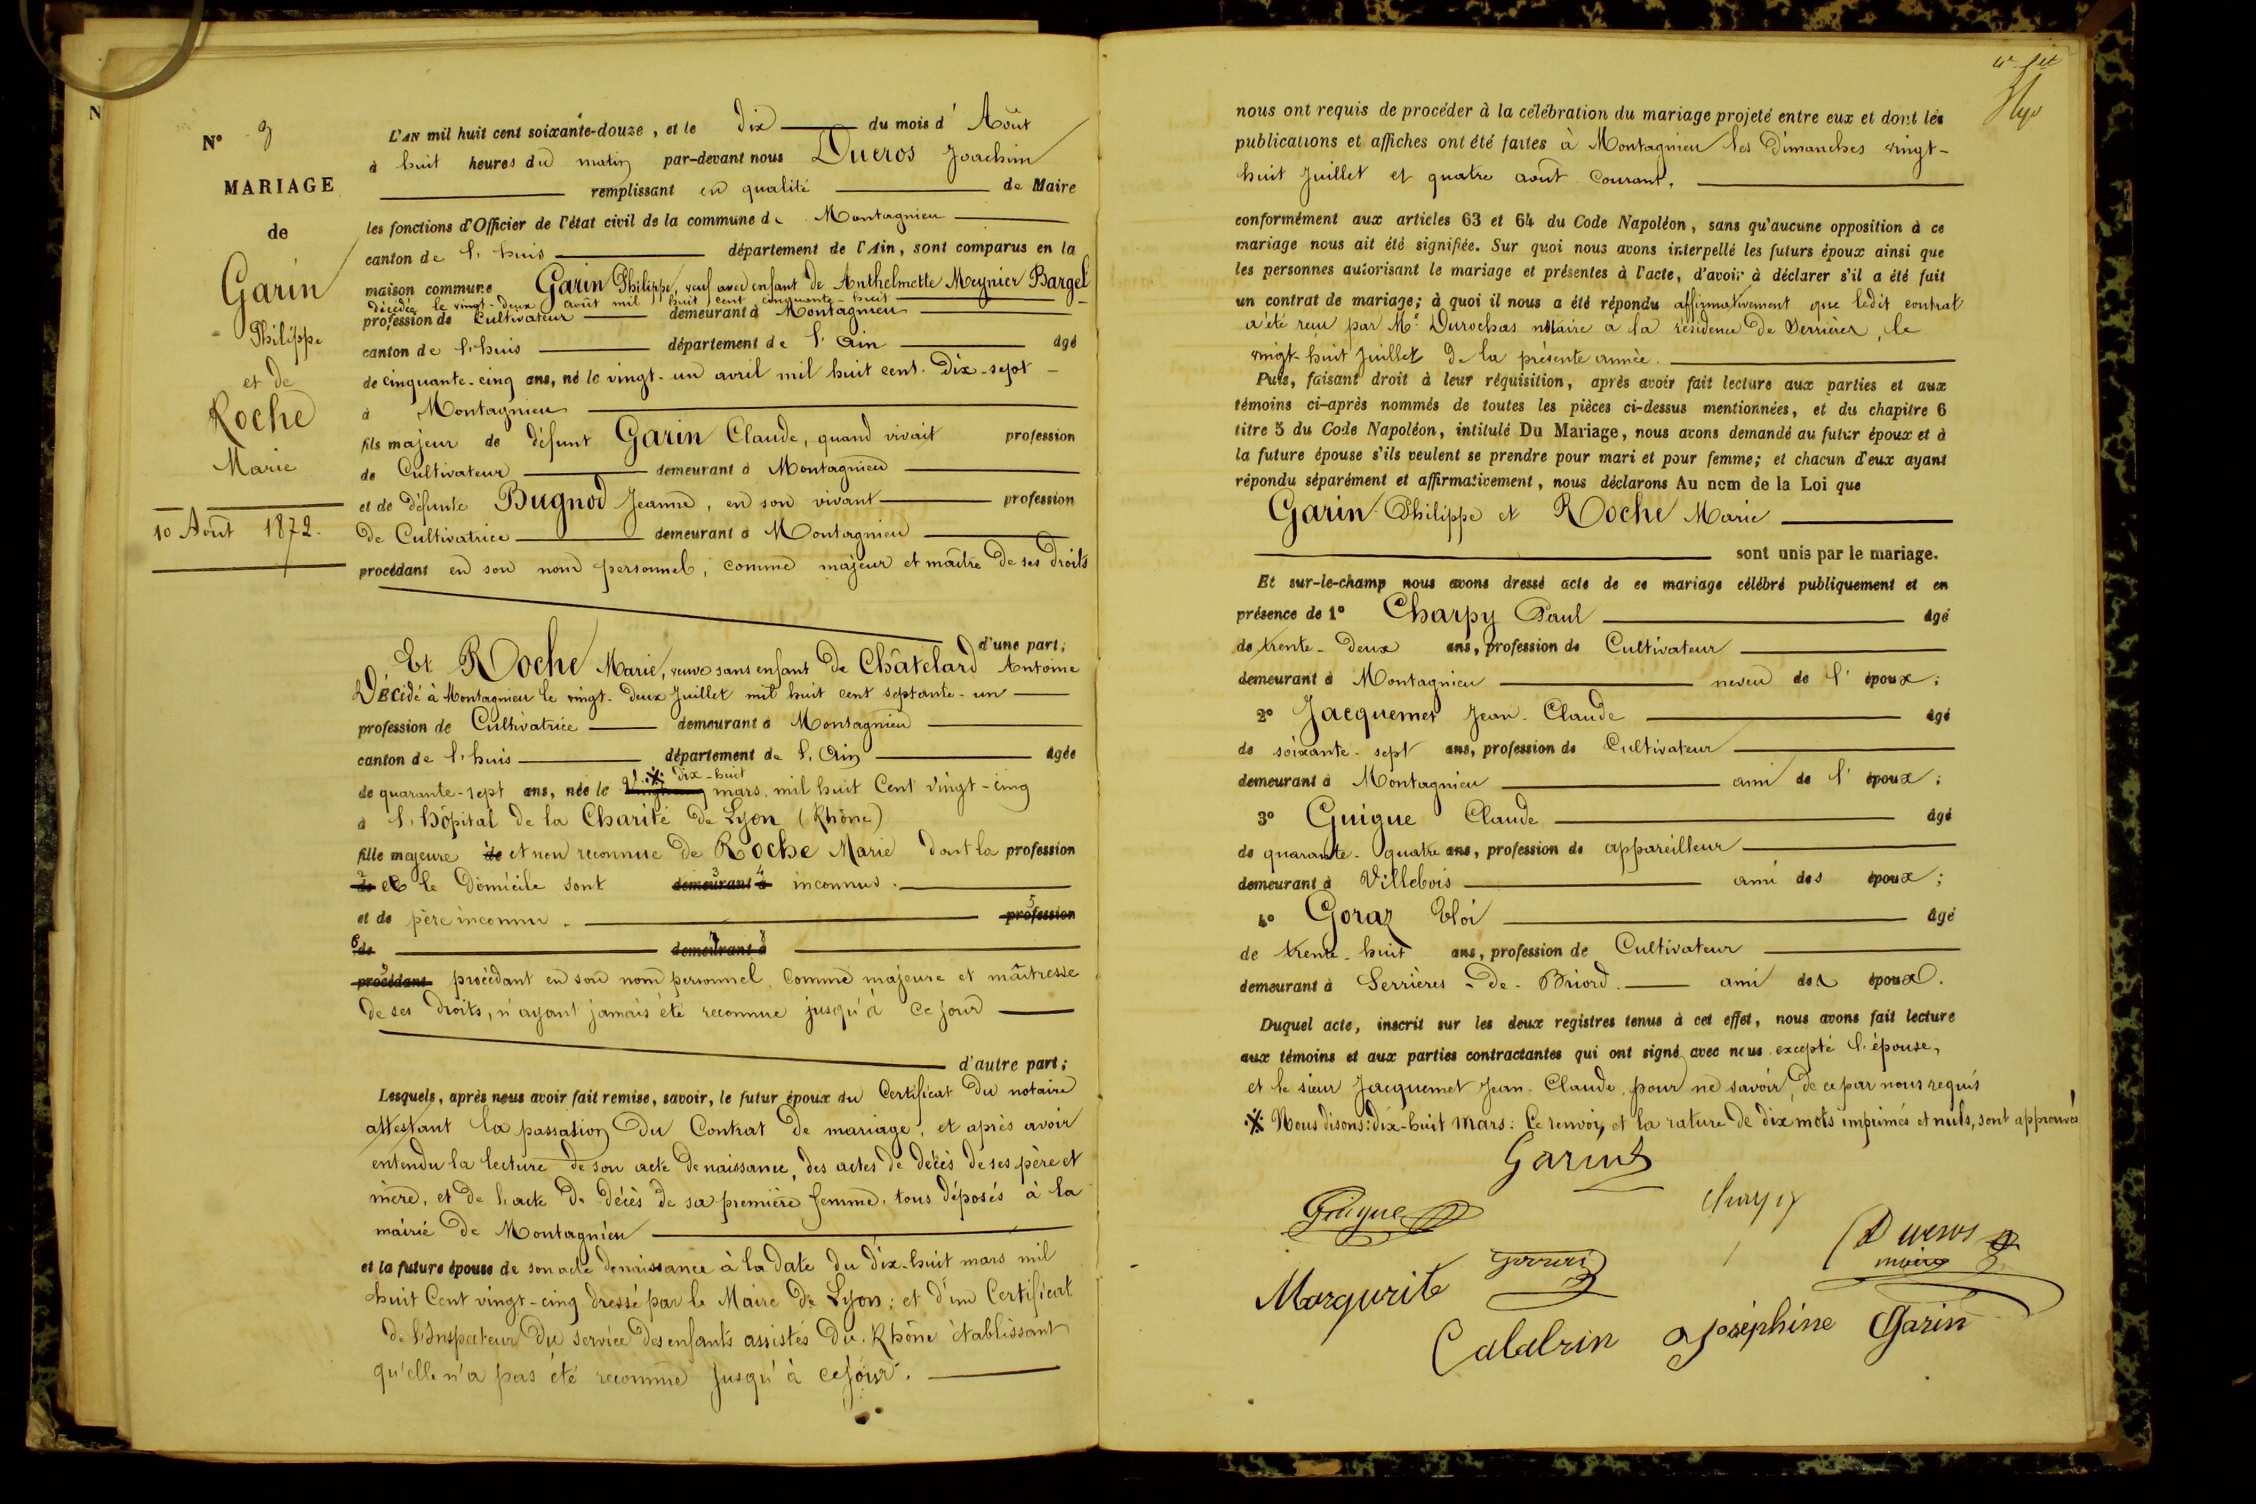 N
N° 9
MARIAGE
de
Garin
Philippe
et de
Roche
Marie
10 Août 1872.
L'AN mil huit cent soixante-douze, et le dix du mois d'Août
à huit heures du matin par-devant nous Ducros Joachim
remplissant en qualité de Maire
les fonctions d'Officier de l'état civil de la commune de Montagnieu
canton de l'huis département de l'Ain, sont comparus en la
maison commune Garin Philippe, veuf avec enfant de Anthelmette Meynier Bargel
décédée le vingt-deux août mil huit cent cinquante-huit
profession de Cultivateur demeurant à Montagnieu
canton de l'huis département de l'Ain âgé
de cinquante-cinq ans, né le vingt-un avril mil huit cent dix-sept
à Montagnieu
fils majeur de défunt Garin Claude, quand vivait profession
de Cultivateur demeurant à Montagnieu
et de défunte Bugnod Jeanne, en son vivant profession
de Cultivatrice demeurant à Montagnieu
procédant en son nom personnel, comme majeur et maître de ses droits
d'une part;
Et Roche Marie, veuve sans enfant de Châtelard Antoine
Décédé à Montagnieu le vingt-deux Juillet mil huit cent septante-un
profession de Cultivatrice demeurant à Montagnieu
canton de l'huis département de l'Ain âgée
de quarante-sept ans, née le ※ dix-huit mars mil huit Cent vingt-cinq
à l'hôpital de la Charité de Lyon (Rhône)
fille majeure de et non reconnue de Roche Marie dont la profession
2 de et le domicile sont 3 demeurant 4 à inconnus.
et de père inconnu. 5 profession
6 de 7 demeurant 8 à
9 procédant procédant en son nom personnel, comme majeure et maîtresse
de ses droits, n'ayant jamais été reconnue jusqu'à ce jour
d'autre part;
Lesquels, après nous avoir fait remise, savoir, le futur époux du Certificat du notaire
attestant la passation du Contrat de mariage, et après avoir
entendu la lecture de son acte de naissance, des actes de décès de ses père et
mère, et de l'acte de décès de sa première femme, tous déposés à la
mairie de Montagnieu
et la future épouse de son acte de naissance à la date du dix-huit mars mil
huit Cent vingt-cinq dressé par le Maire de Lyon; et d'un Certificat
de l'Inspecteur du service des enfants assistés du Rhône établissant
qu'elle n'a pas été reconnue jusqu'à ce jour.
nous ont requis de procéder à la célébration du mariage projeté entre eux et dont les
publications et affiches ont été faites à Montagnieu les dimanches vingt-
huit Juillet et quatre août courant.
conformément aux articles 63 et 64 du Code Napoléon, sans qu'aucune opposition à ce
mariage nous ait été signifiée. Sur quoi nous avons interpellé les futurs époux ainsi que
les personnes autorisant le mariage et présentes à l'acte, d'avoir à déclarer s'il a été fait
un contrat de mariage; à quoi il nous a été répondu affirmativement que ledit contrat
a été reçu par Me Durochas notaire à la résidence de Serrières, le
vingt-huit Juillet de la présente année.
Puis, faisant droit à leur réquisition, après avoir fait lecture aux parties et aux
témoins ci-après nommés de toutes les pièces ci-dessus mentionnées, et du chapitre 6
titre 5 du Code Napoléon, intitulé Du Mariage, nous avons demandé au futur époux et à
la future épouse s'ils veulent se prendre pour mari et pour femme; et chacun d'eux ayant
répondu séparément et affirmativement, nous déclarons Au nom de la Loi que
Garin Philippe et Roche Marie
sont unis par le mariage.
Et sur-le-champ nous avons dressé acte de ce mariage célébré publiquement et en
présence de 1° Charpy Paul âgé
de trente-deux ans, profession de Cultivateur
demeurant à Montagnieu neveu de l'époux;
2° Jacquemet Jean-Claude âgé
de soixante-sept ans, profession de Cultivateur
demeurant à Montagnieu ami de l'époux;
3° Guigue Claude âgé
de quarante-quatre ans, profession de appareilleur
demeurant à Villebois ami des époux;
4° Goraz Eloi âgé
de trente-huit ans, profession de Cultivateur
demeurant à Serrières-de-Briord. ami des époux.
Duquel acte, inscrit sur les deux registres tenus à cet effet, nous avons fait lecture
aux témoins et aux parties contractantes qui ont signé avec nous excepté l'épouse,
et le sieur Jacquemet Jean-Claude, pour ne savoir, de ce par nous requis
※ Nous disons: dix-huit mars: Ce renvoi, et la rature de dix mots imprimés et nuls, sont approuvés
Garin
Guigue
Charpy
Ducros
maire
Margurite
Calalrin Joséphine Garin